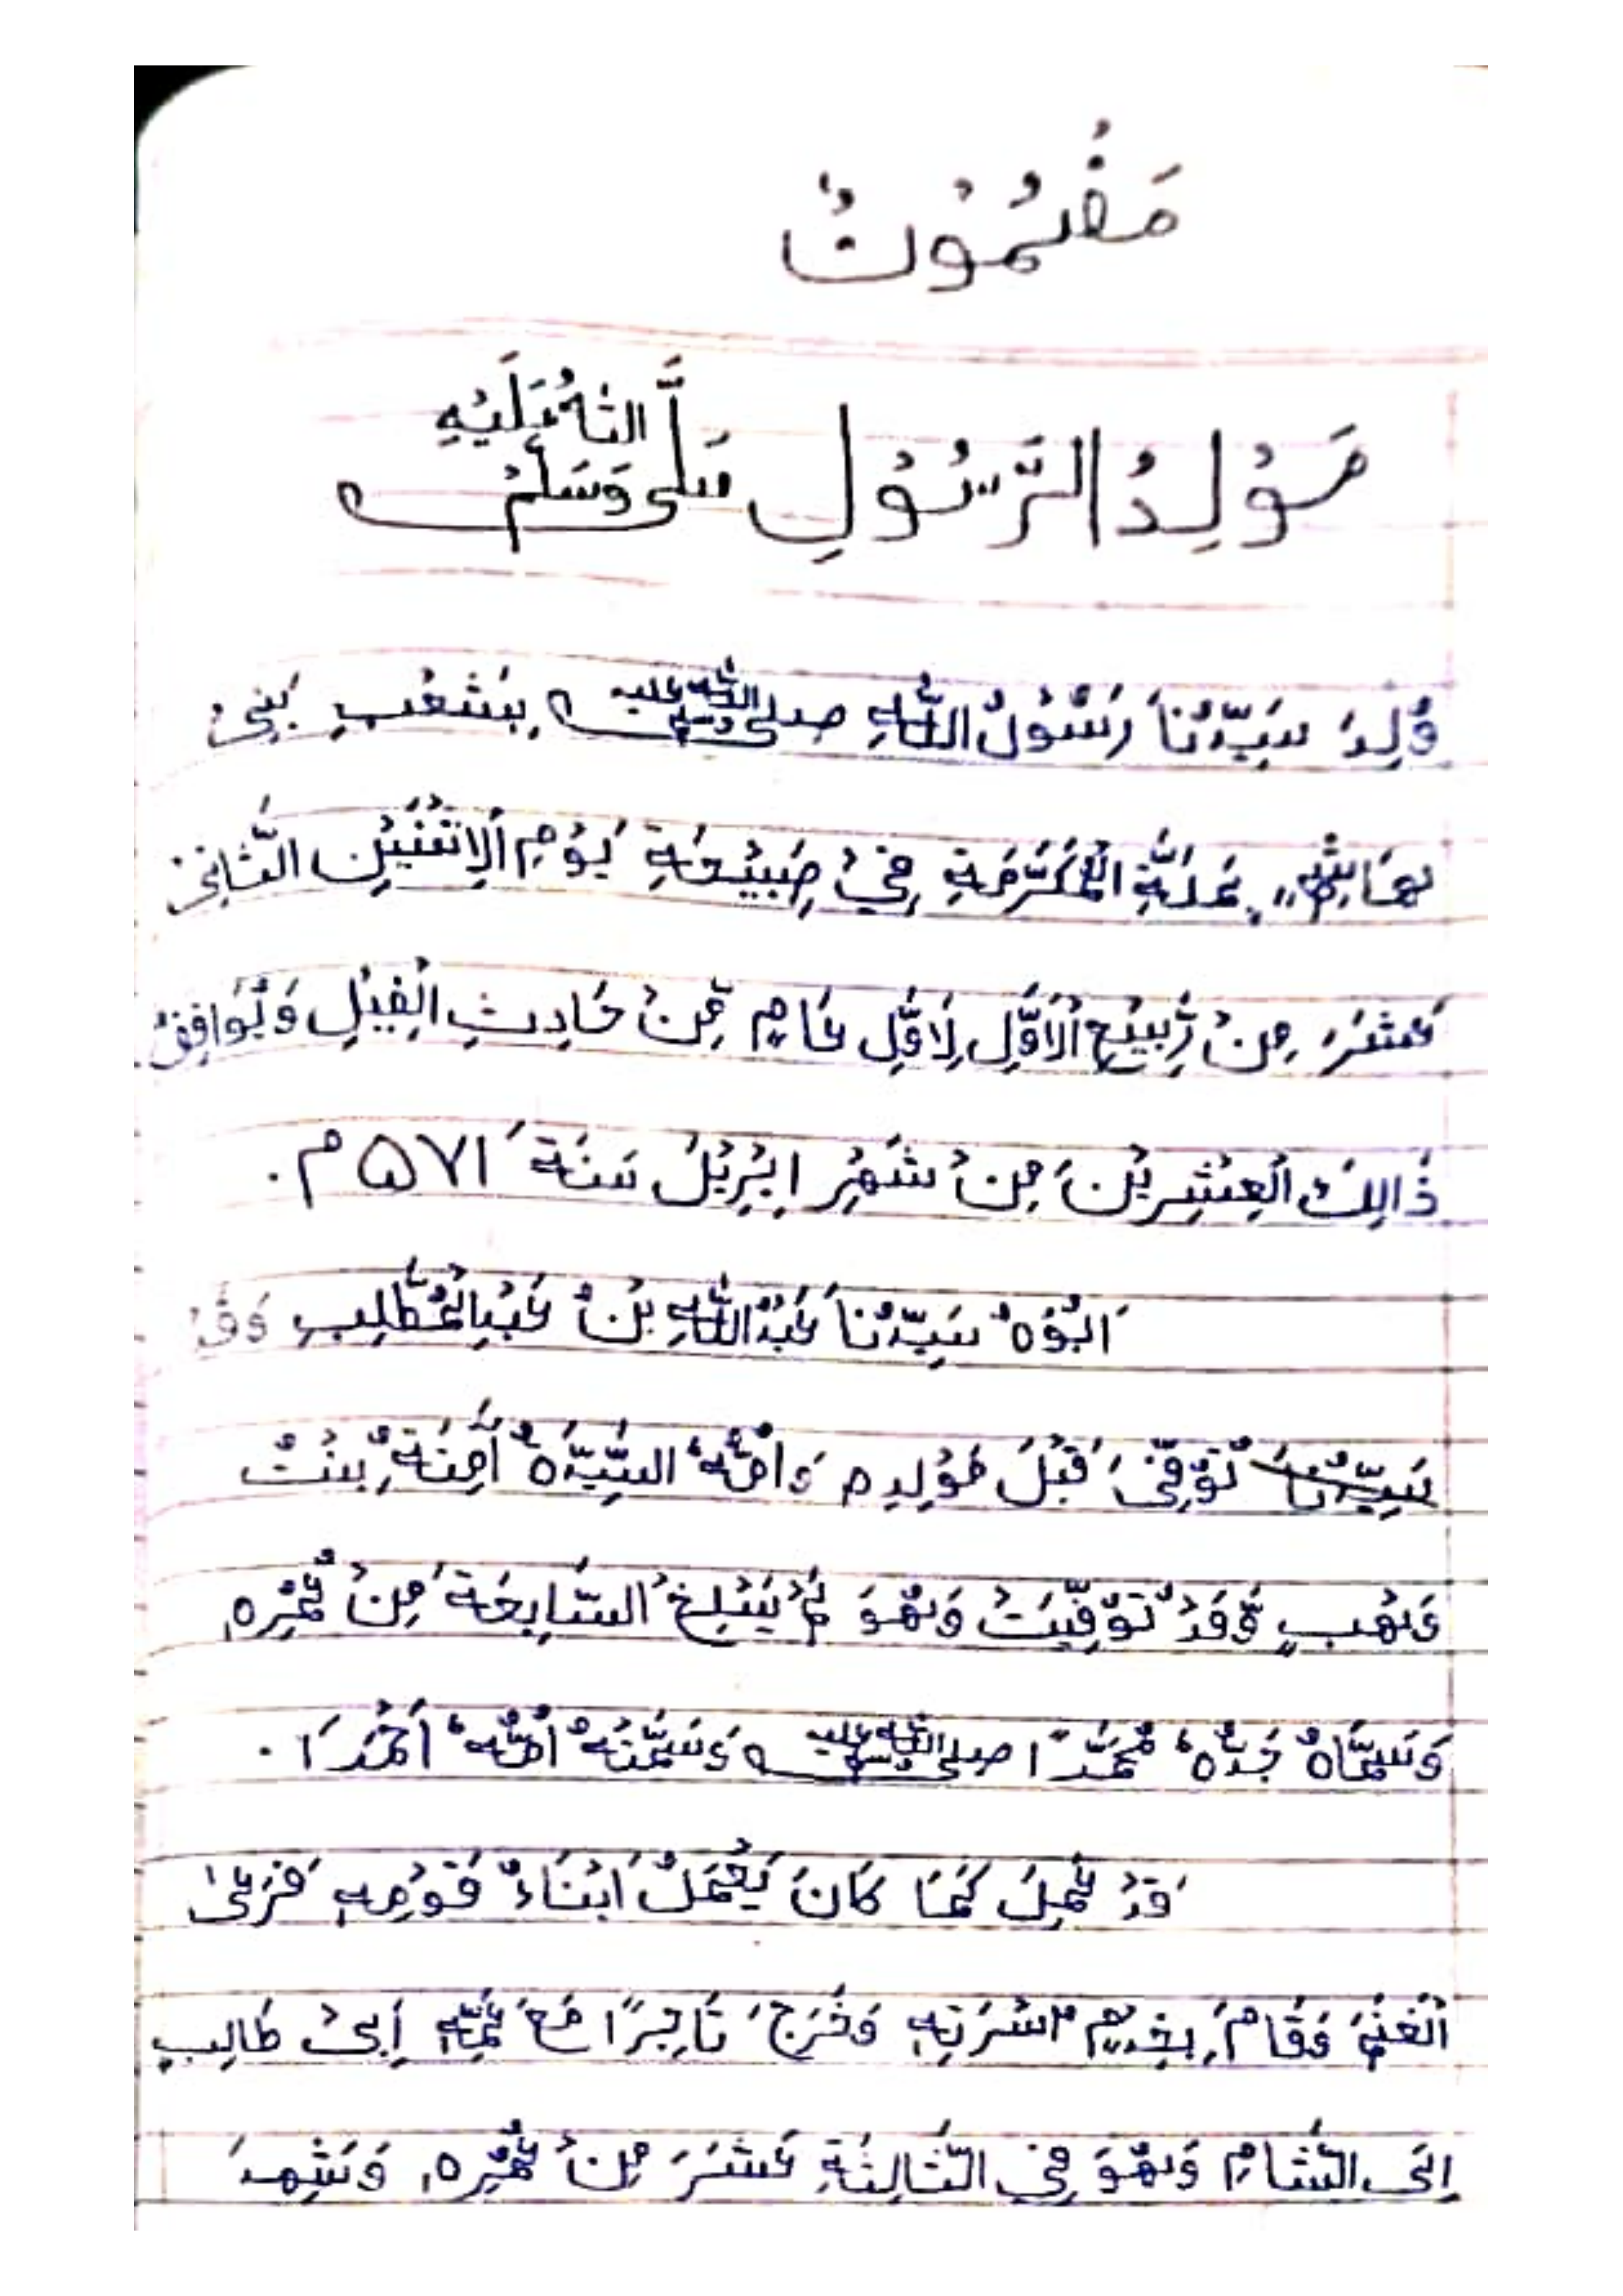 مَضْمُوْنٌ
مَوْلِدُ الرَّسُوْلِ صَلَّى اللهُ عَلَيْهِ وَسَلَّمْ
وُلِدَ سَيِّدُنَا رَسُوْلُ اللّٰهِ صلى الله عليه وسلم بِشَعْبِ بَنِيْ
هَاشِمٍ بِمَكَّةِ الْمُكَرَّمَةِ فِيْ صَبِيْحَةِ يَوْمِ الْاِثْنَيْنِ الثَّانِيْ
عَشَرَ مِنْ رَّبِيْعِ الْاَوَّلِ لِاَوَّلِ عَامٍ مِّنْ حَادِثِ الْفِيْلِ وَيُوَافِقُ
ذَالِكَ الْعِشْرِيْنَ مِنْ شَهْرِ اِبْرِيْلَ سَنَةَ ۵۷۱ م.
اَبُوْهُ سَيِّدُنَا عَبْدُ اللّٰهِ بْنُ عَبْدِ الْمُطَّلِبِ وَقَدْ
سَيِّدُنَا تُوُفِّيَ قَبْلَ مَوْلِدِهِ وَاُمُّهُ السَّيِّدَةُ اٰمِنَةُ بِنْتُ
وَهْبٍ وَّقَدْ تُوُفِّيَتْ وَهُوَ لَمْ يَبْلِغْ السَّابِعَةَ مِنْ عُمْرِهِ
وَسَمَّاهُ جَدُّهُ مُحَمَّدًا صلى الله عليه وسلم وَسَمَّتْهُ اُمُّهُ اَحْمَدَا.
قَدْ عَمِلَ كَمَا كَانَ يَعْمَلُ اَبْنَاءُ قَوْمِهِ فَرَعٰى
الْغَنَمَ وَقَامَ بِخِدَمِ اُسْرَتِهِ وَخَرَجَ تَاجِرًا مَعَ عَمِّهِ اَبِيْ طَالِبٍ
اِلَى الشَّامِ وَهُوَ فِي الثَّالِثَةِ عَشَرَ مِنْ عُمْرِهِ وَشَهِدَ